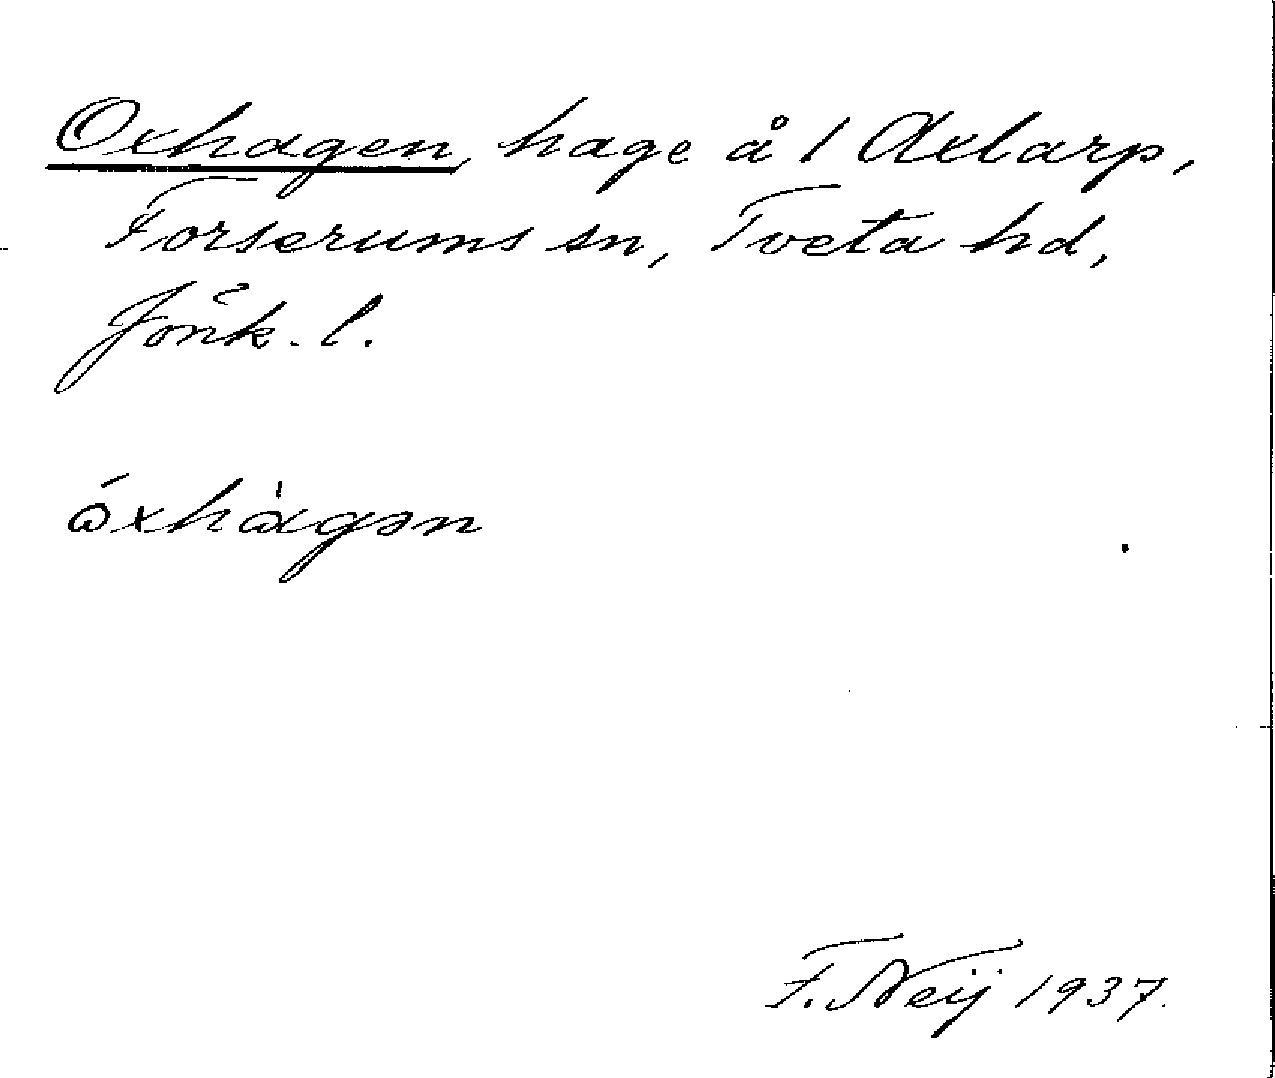 Oxhagen, hage å 1 Axlarp,
Forserums sn, Tveta hd,
Jönk. l.
F. Neij 1937.